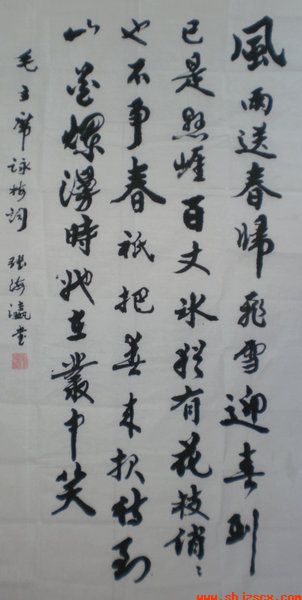 風雨送春歸飛雪迎春到
已是懸崖百丈冰猶有花枝俏〻
也不爭春祇把春來報待到
山花爛漫時她在叢中笑
毛主席詠梅詞 張海瀛書
www.shjzscx.com